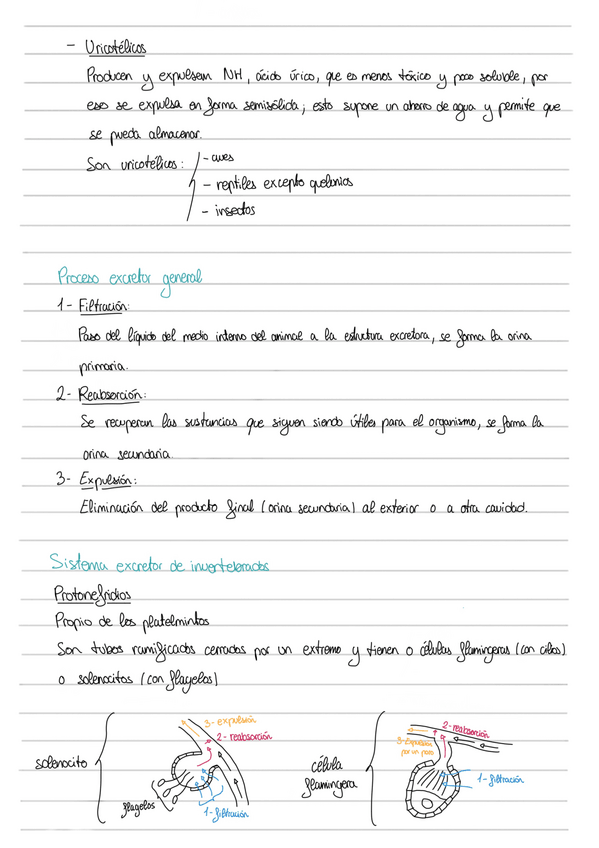 - Uricotélicos
Producen y expulsan NH, ácido úrico, que es menos tóxico y poco soluble, por
eso se expulsa en forma semisólida; esto supone un ahorro de agua y permite que
se pueda almacenar.
Son uricotélicos:
- aves
- reptiles excepto quelonios
- insectos
Proceso excretor general
1- Filtración:
Paso del líquido del medio interno del animal a la estructura excretora, se forma la orina
primaria.
2- Reabsorción:
Se recuperan las sustancias que siguen siendo útiles para el organismo, se forma la
orina secundaria.
3- Expulsión:
Eliminación del producto final (orina secundaria) al exterior o a otra cavidad.
Sistema excretor de invertebrados
Protonefridios
Propio de los platelmintos
Son tubos ramificados cerrados por un extremo y tienen o células flamíngeras (con cilios)
o solenocitos (con flagelos)
solenocito
3- expulsión
2- reabsorción
flagelos
1- filtración
célula
flamíngera
2- reabsorción
3- Expulsión
por un poro
1- filtración